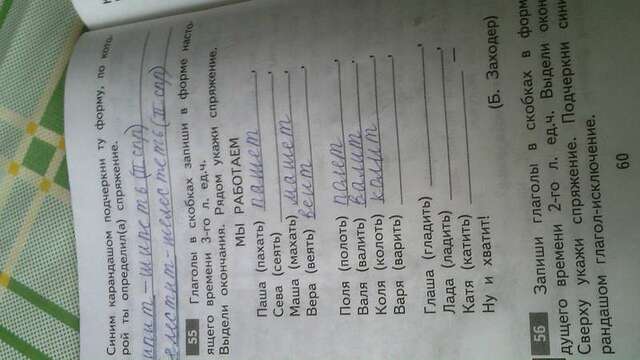 Синим карандашом подчеркни ту форму, по кото-
рой ты определил(а) спряжение.
шипит - шипеть (II спр)
шелестит - шелестеть (II спр)
55 Глаголы в скобках запиши в форме насто-
ящего времени 3-го л. ед.ч.
Выдели окончания. Рядом укажи спряжение.
МЫ РАБОТАЕМ
Паша (пахать) пашет,
Сева (сеять)
Маша (махать) машет,
Вера (веять) веит,
Поля (полоть) полет,
Валя (валить) валит,
Коля (колоть) колит,
Варя (варить)
Глаша (гладить)
Лада (ладить)
Катя (катить) –
Ну и хватит!
(Б. Заходер)
56 Запиши глаголы в скобках в форм
дущего времени 2-го л. ед.ч. Выдели окон
Сверху укажи спряжение. Подчеркни сини
рандашом глагол-исключение.
60